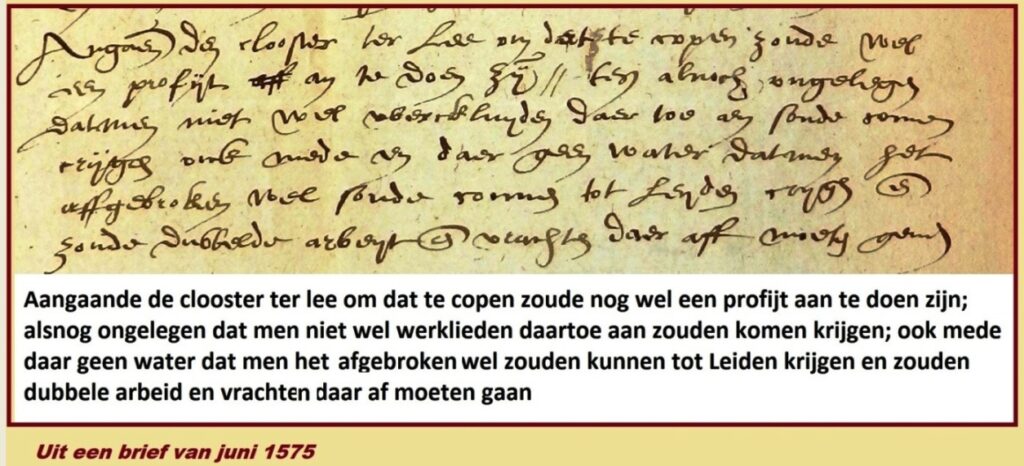 Angaen den clooster ter Lee om dat te copen zoude wel
een profijt aff an te doen zijn // ten alnoch ongelegen
datmen niet wel werckluyden daer toe an soude comen
crijgen oick mede en daer geen water datmen het
affgebroken wel soude comen tot Leyden crijgen en
zoude dubbelde arbeyt en vrachten daer aff moeten geven
Aangaande de clooster ter lee om dat te copen zoude nog wel een profijt aan te doen zijn;
alsnog ongelegen dat men niet wel werklieden daartoe aan zouden komen krijgen; ook mede
daar geen water dat men het afgebroken wel zouden kunnen tot Leiden krijgen en zouden
dubbele arbeid en vrachten daar af moeten gaan
Uit een brief van juni 1575